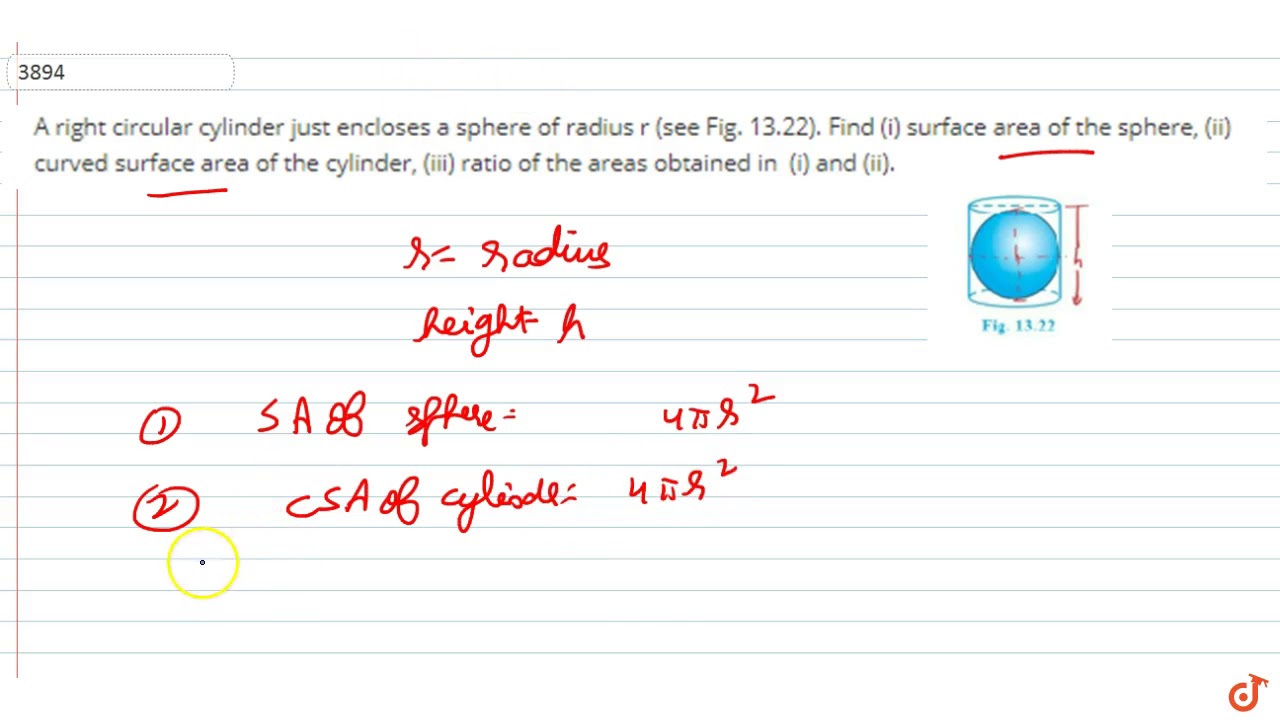 3894
A right circular cylinder just encloses a sphere of radius r (see Fig. 13.22). Find (i) surface area of the sphere, (ii)
curved surface area of the cylinder, (iii) ratio of the areas obtained in (i) and (ii).
r= radius
h
Fig. 13.22
height= h
① SA of sphere= 4πr²
② CSA of cylinder= 4πr²
d